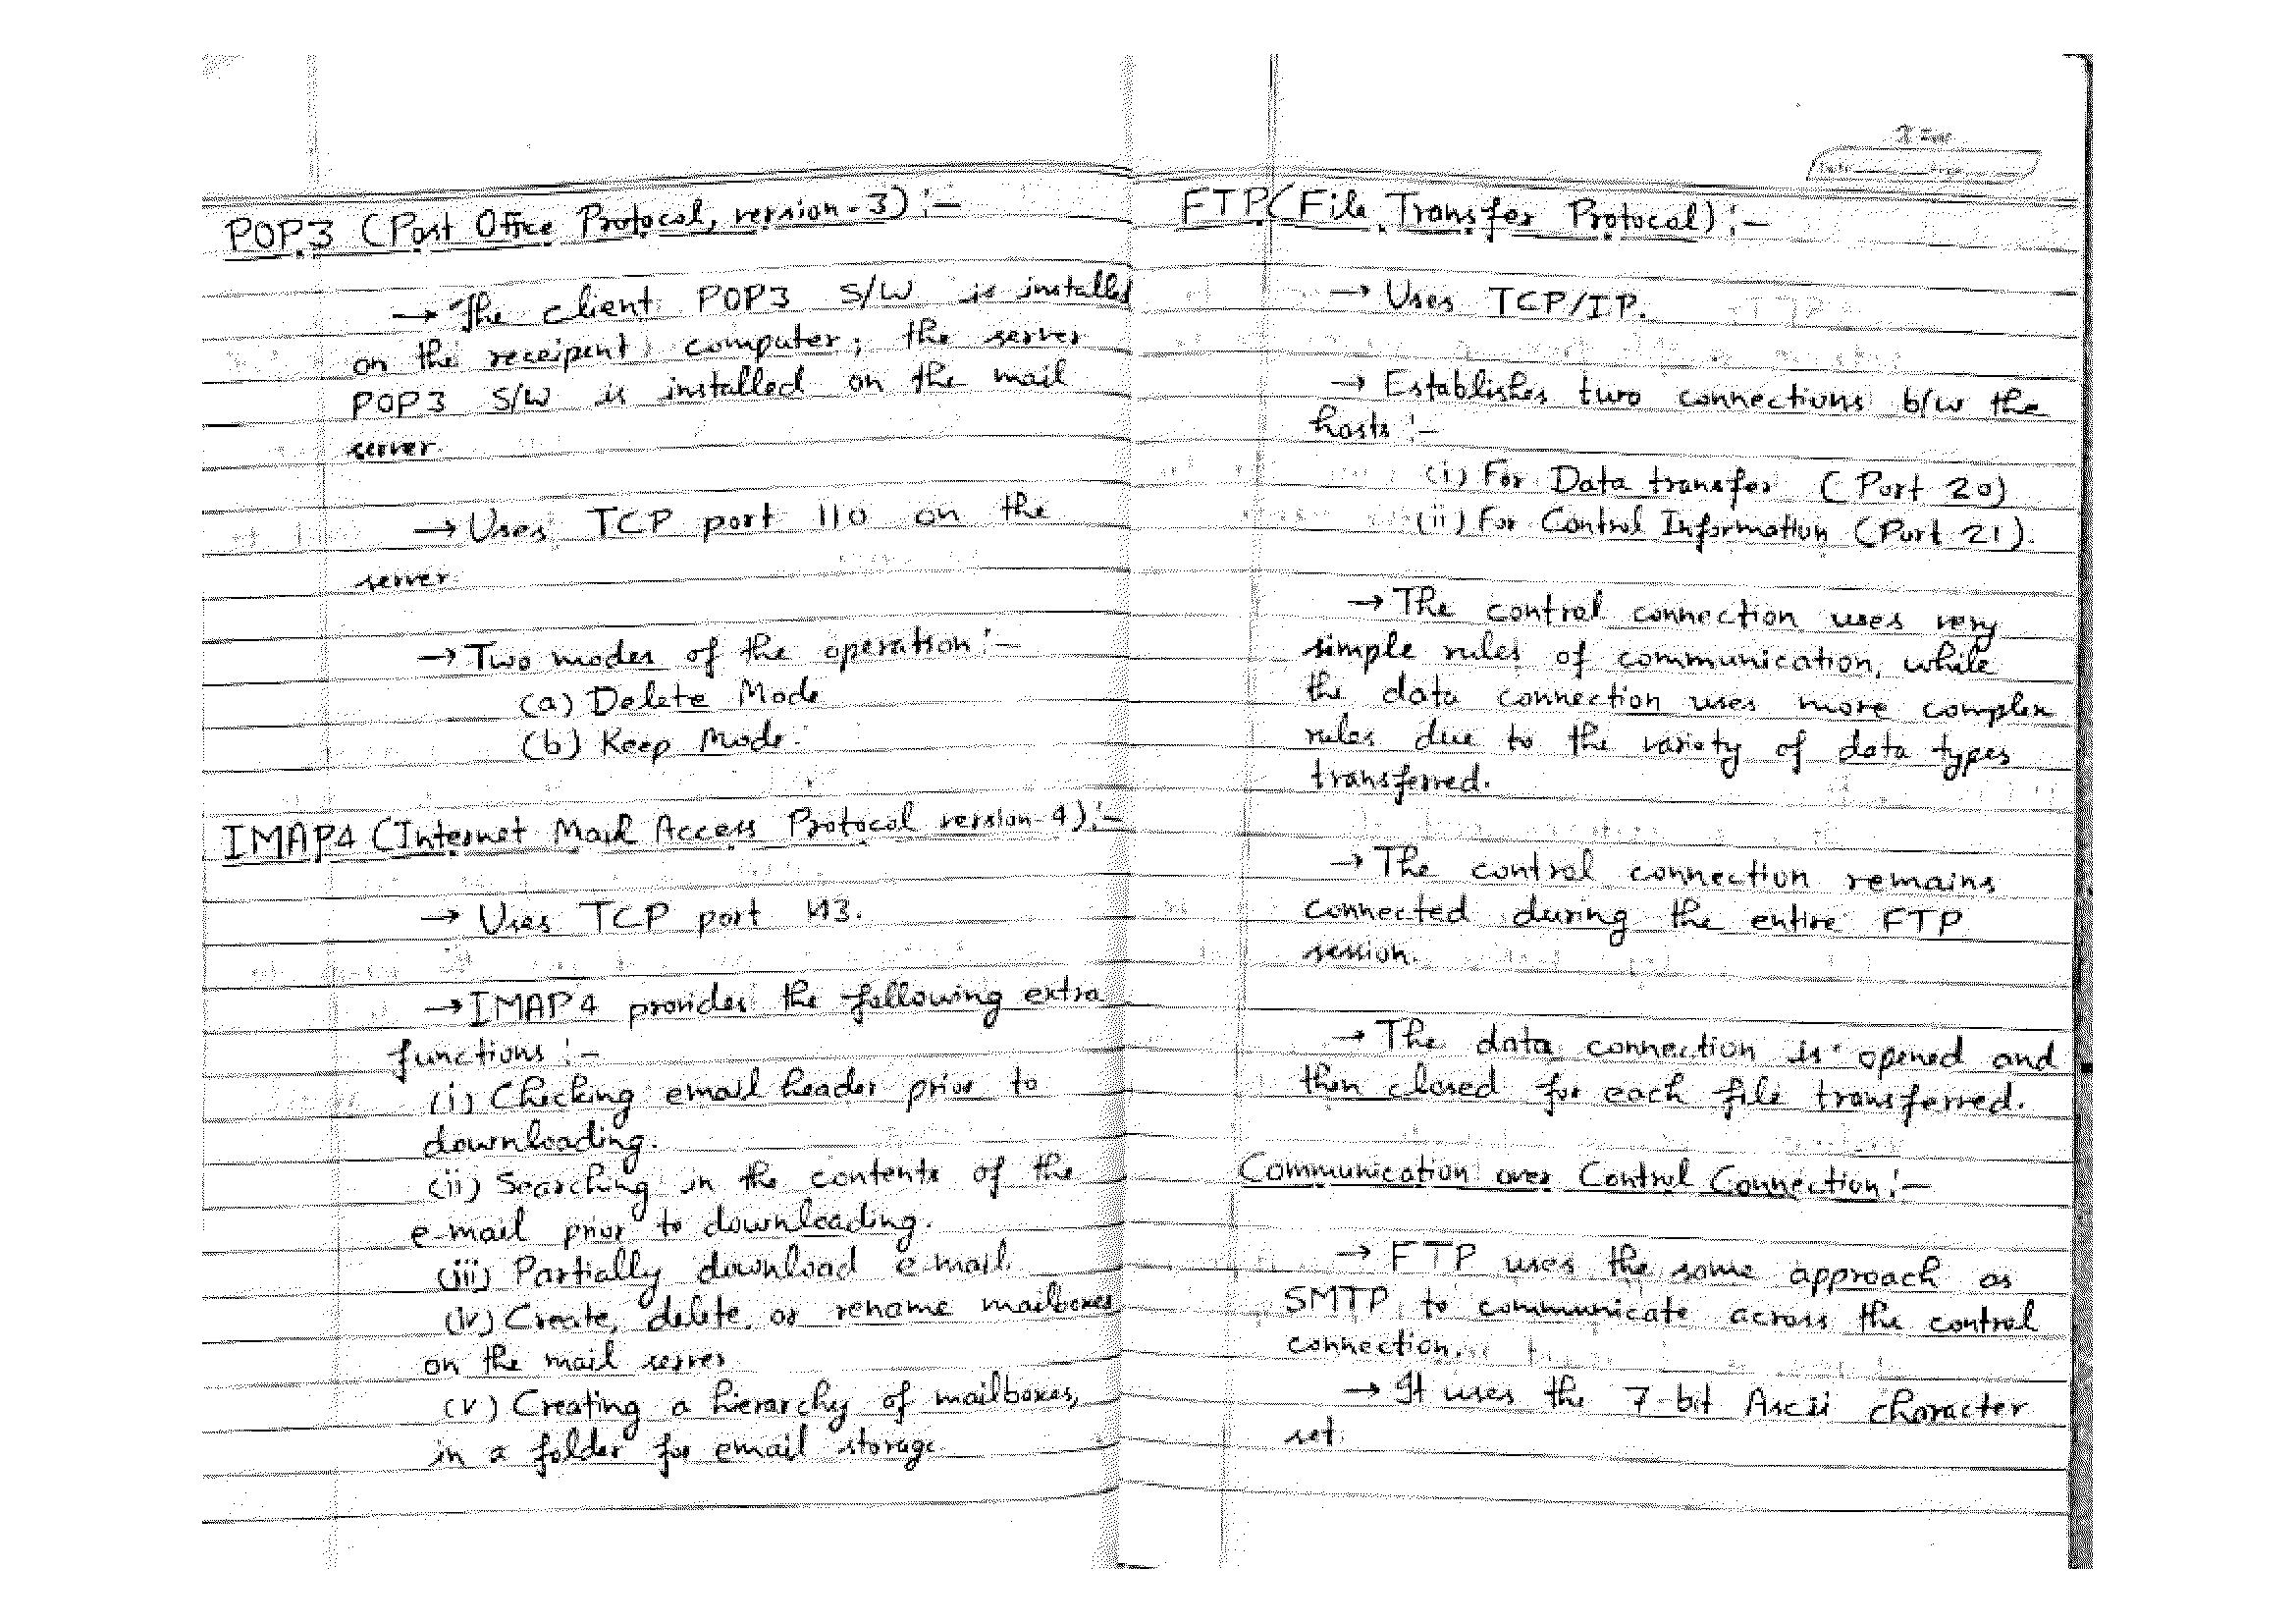 POP3 (Post Office Protocol, version-3):-
→ The client POP3 S/W is installed
on the receipent computer; the server
POP3 S/W is installed on the mail
server.
→ Uses TCP port 110 on the
server.
→ Two modes of the operation:-
(a) Delete Mode
(b) Keep Mode.
IMAP4 (Internet Mail Access Protocol version-4):-
→ Uses TCP port 143.
→ IMAP4 provides the following extra
functions:-
(i) Checking email header prior to
downloading.
(ii) Searching in the contents of the
e-mail prior to downloading.
(iii) Partially download e-mail.
(iv) Create, delete, or rename mailboxes
on the mail server
(v) Creating a hierarchy of mailboxes,
in a folder for email storage.
FTP (File Transfer Protocol):-
→ Uses TCP/IP.
→ Establishes two connections b/w the
hosts:-
(i) For Data transfer (Port 20)
(ii) For Control Information (Port 21).
→ The control connection uses very
simple rules of communication, while
the data connection uses more complex
rules due to the variety of data types
transferred.
→ The control connection remains
connected during the entire FTP
session.
→ The data connection is opened and
then closed for each file transferred.
Communication over Control Connection:-
→ FTP uses the same approach as
SMTP to communicate across the control
connection.
→ It uses the 7-bit Ascii character
set.